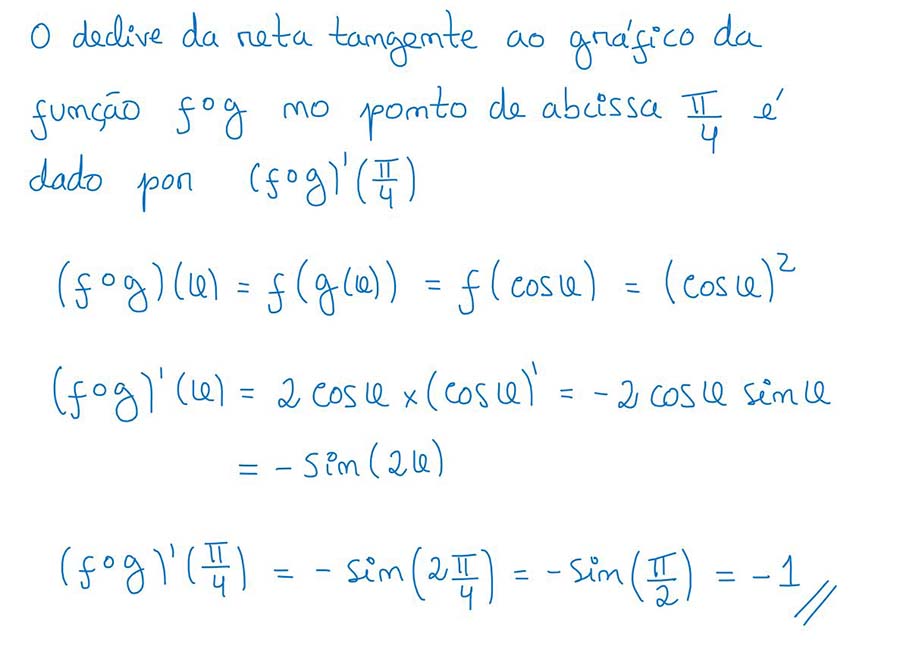 O declive da reta tangente ao gráfico da
função f∘g no ponto de abcissa π/4 é
dado por (f∘g)'(π/4)
(f∘g)(x) = f(g(x)) = f(cos x) = (cos x)²
(f∘g)'(x) = 2 cos x × (cos x)' = -2 cos x sin x
= - sin(2x)
(f∘g)'(π/4) = - sin(2π/4) = - sin(π/2) = -1 //